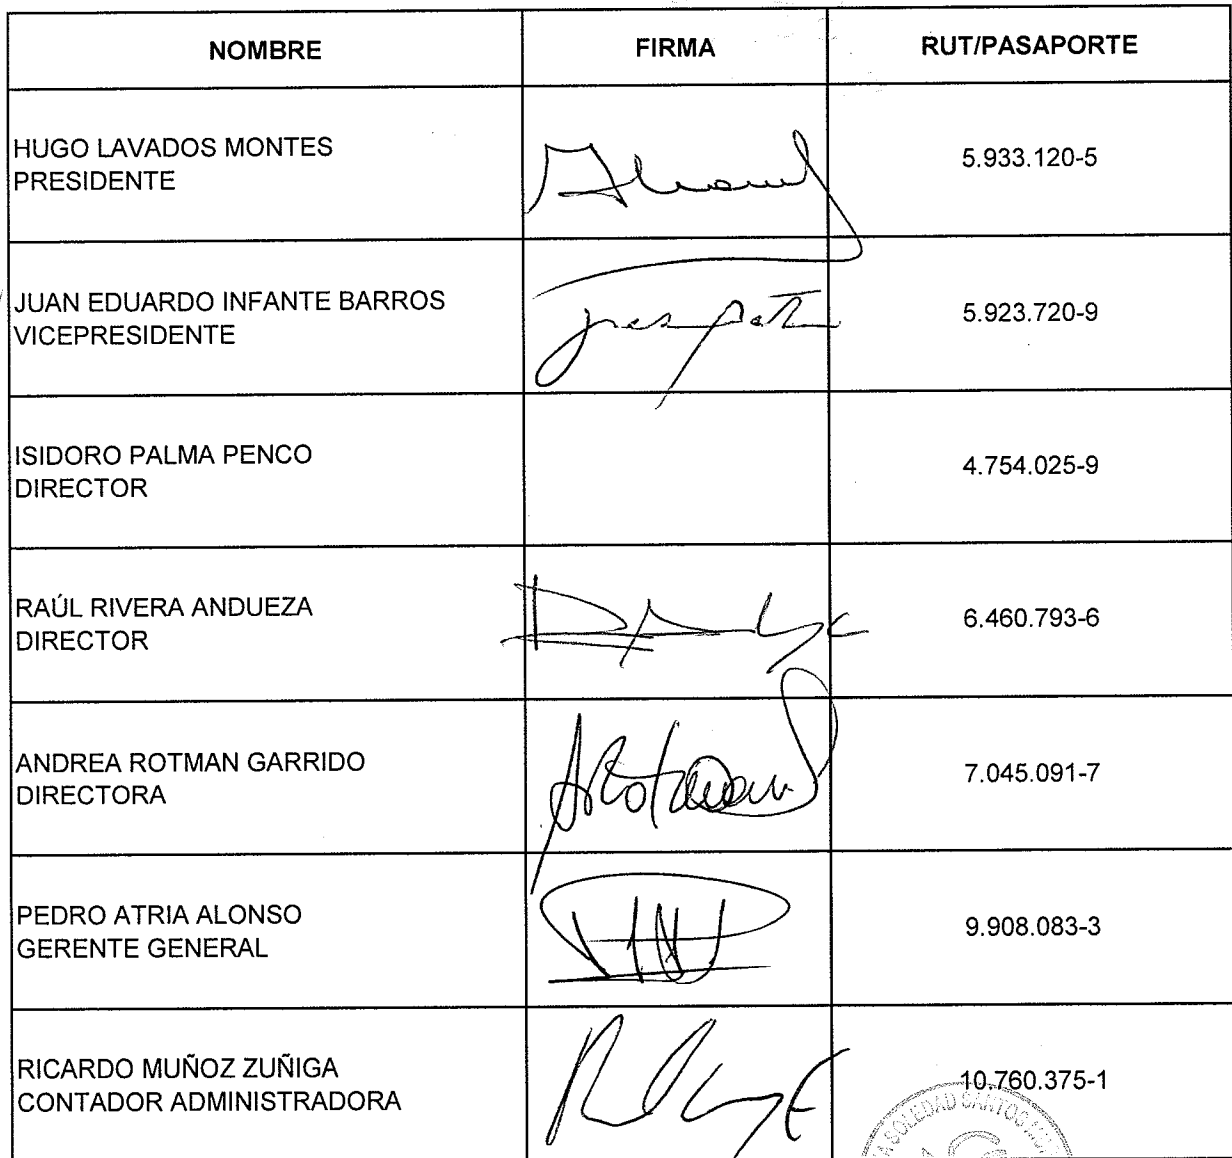 NOMBRE FIRMA RUT/PASAPORTE
HUGO LAVADOS MONTES
PRESIDENTE
5.933.120-5
JUAN EDUARDO INFANTE BARROS
VICEPRESIDENTE
5.923.720-9
ISIDORO PALMA PENCO
DIRECTOR
4.754.025-9
RAÚL RIVERA ANDUEZA
DIRECTOR
6.460.793-6
ANDREA ROTMAN GARRIDO
DIRECTORA
7.045.091-7
PEDRO ATRIA ALONSO
GERENTE GENERAL
9.908.083-3
RICARDO MUÑOZ ZUÑIGA
CONTADOR ADMINISTRADORA
10.760.375-1
SOLEDAD SANTOS